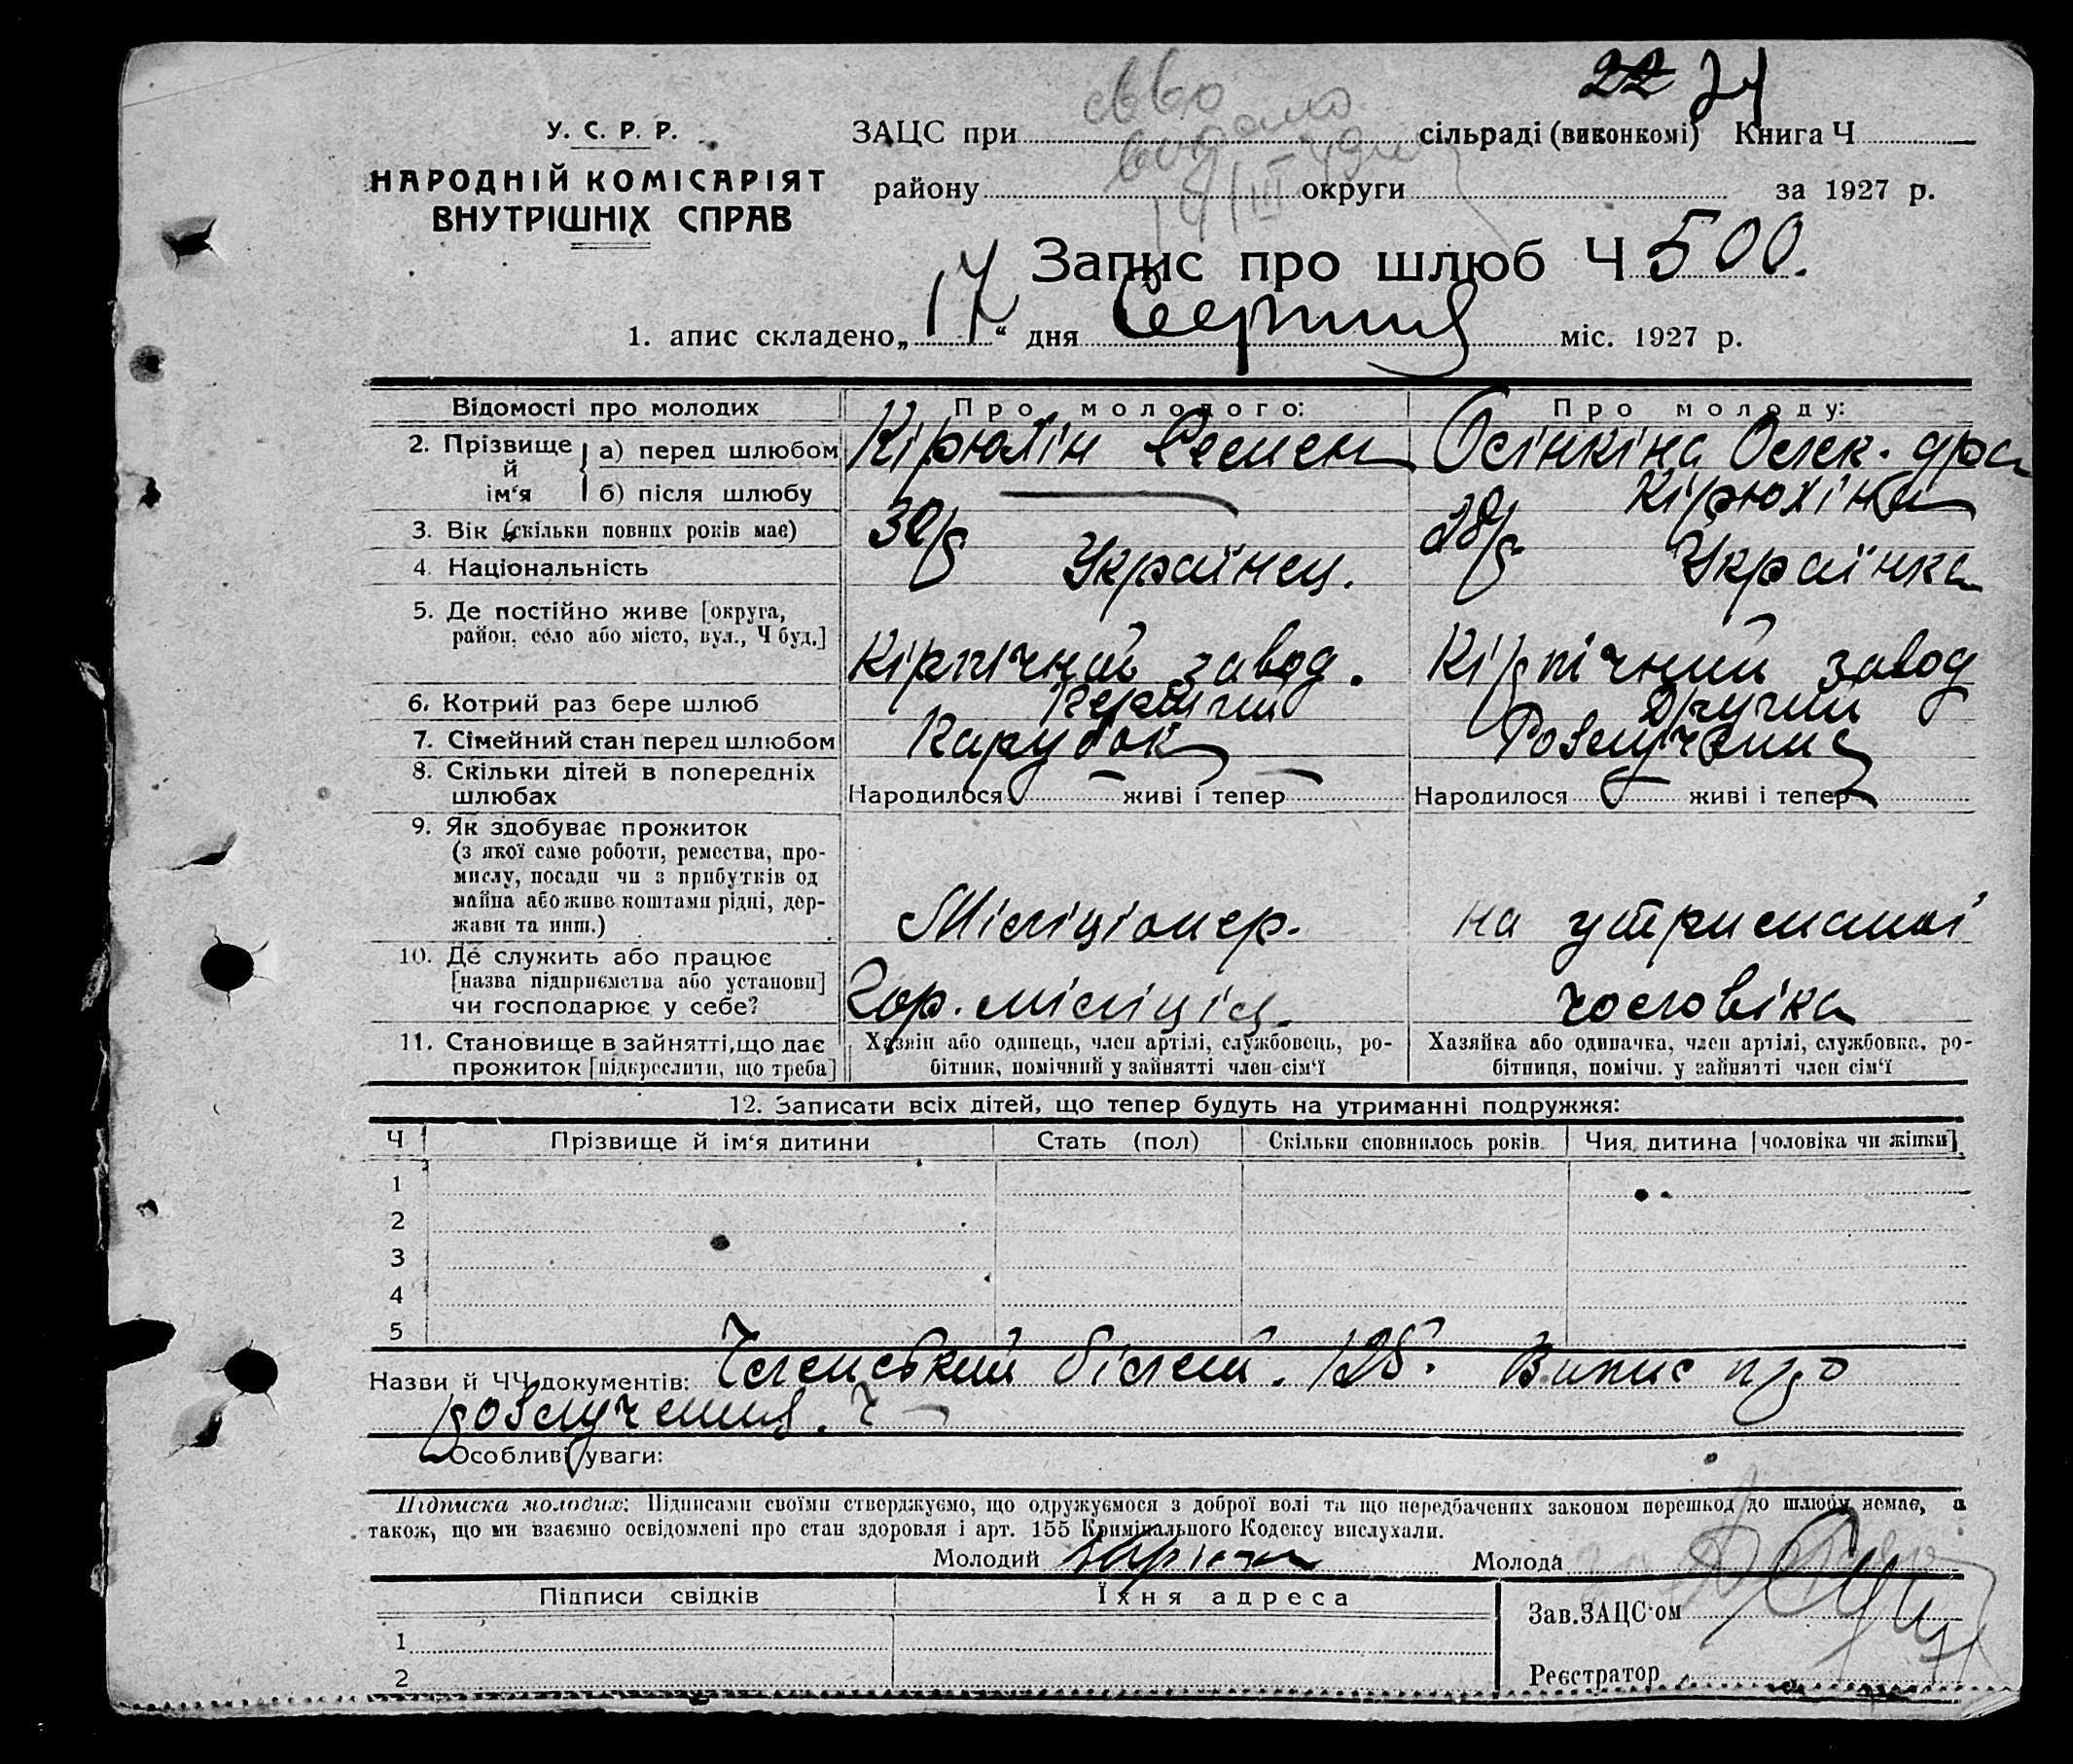 22 24
У. С. Р. Р.
НАРОДНІЙ КОМІСАРІЯТ
ВНУТРІШНІХ СПРАВ
ЗАЦС при сільраді (виконкомі) Книга Ч
району округи за 1927 р.
Запис про шлюб Ч 500.
1. апис складено „17“ дня Серпня міс. 1927 р.
Відомості про молодих Про молодого: Про молоду:
2. Прізвище й ім‘я а) перед шлюбом Кірюхін Семен Осінкіна Олек. дра
б) після шлюбу Кірюхіна
3. Вік (скільки повних років має) 30/8 28/8
4. Національність Українец. Українка
5. Де постійно живе [округа,
район, село або місто, вул., Ч буд.] Кірпічний завод. Кірпічний завод
6. Котрий раз бере шлюб Перший Другий
7. Сімейний стан перед шлюбом Парубок Розлучена
8. Скільки дітей в попередніх
шлюбах Народилося живі і тепер Народилося живі і тепер
9. Як здобуває прожиток
(з якої саме роботи, ремества, про-
мислу, посади чи з прибутків од
майна або живе коштами рідні, дер-
жави та инш.) Міліціонер. на утриманні
10. Де служить або працює
[назва підприємства або установи]
чи господарює у себе? Гор. міліція. чоловіка
11. Становище в зайнятті, що дає
прожиток [підкреслити, що треба]
Хазяїн або одинець, член артілі, службовець, ро-
бітник, помічний у зайнятті член сім‘ї
Хазяйка або одиначка, член артілі, службовка, ро-
бітниця, помічн. у зайнятті член сім‘ї
12. Записати всіх дітей, що тепер будуть на утриманні подружжя:
Ч Прізвище й ім‘я дитини Стать (пол) Скільки сповнилось років Чия дитина [чоловіка чи жінки]
1
2
3
4
5
Назви й ЧЧ документів: Членський білет. 125. Випис про
розлучення. Ч —
Особливі уваги:
Підписка молодих: Підписами своїми стверджуємо, що одружуємося з доброї волі та що передбачених законом перешкод до шлюбу немає, а
також, що ми взаємно освідомлені про стан здоровля і арт. 155 Кримінального Кодексу вислухали.
Молодий Молода
Підписи свідків Їхня адреса
Зав. ЗАЦС‘ом
1
2
Реєстратор